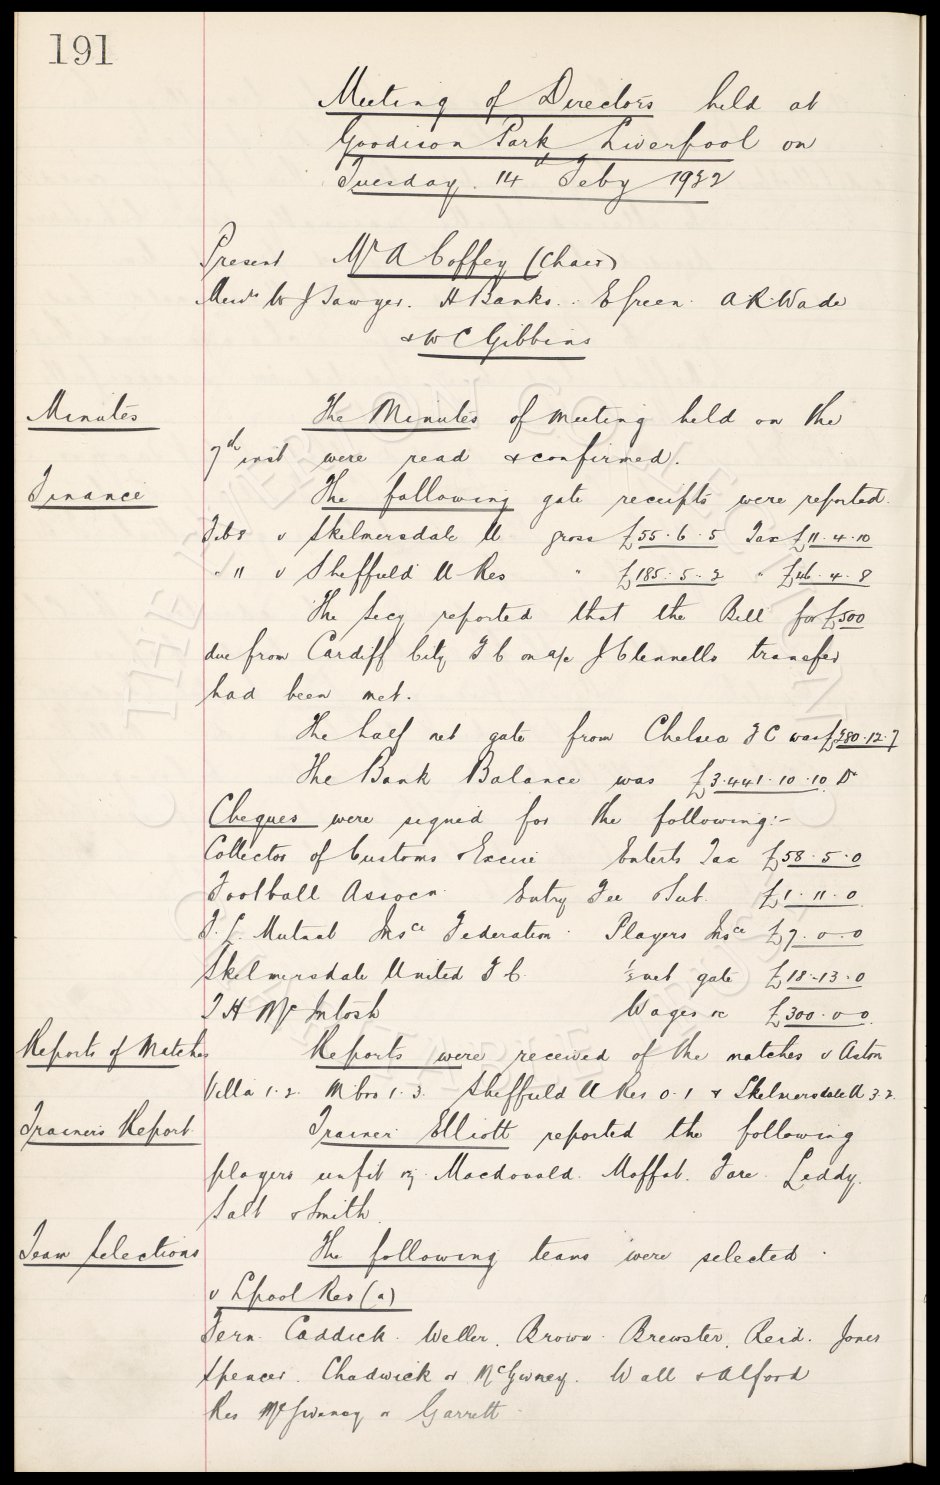 191
Meeting of Directors held at
Goodison Park Liverpool on
Tuesday 14th Feby 1922
Present Mr A Coffey (Chair)
Messrs W J Sawyer. H Banks. E Green. A R Wade
& W C Gibbins
Minutes The Minutes of meeting held on the
7th inst were read & confirmed.
Finance The following gate receipts were reported.
Feb 8 v Skelmersdale U gross £55.6.5 Tax £11.4.10
" 11 v Sheffield U Res " £185.5.2 " £46.4.8
The Secy reported that the Bill for £500
due from Cardiff City F C on a/c J Clennells transfer
had been met.
The half net gate from Chelsea F C was £780.12.7
The Bank Balance was £3.441.10.10 Dr
Cheques were signed for the following:-
Collector of Customs & Excise Enterts Tax £58.5.0
Football Assocn. Entry Fee & Sub. £1.11.0
F. L. Mutual Insce Federation. Players Insce £7.0.0
Skelmersdale United F C. ½ net gate £18.13.0
T H McIntosh Wages &c £300.0.0
Reports of Matches Reports were received of the matches v Aston
Villa 1.2. M'bro 1.3. Sheffield U Res 0.1 & Skelmersdale U 3.2.
Trainers Report Trainer Elliott reported the following
players unfit viz. Macdonald. Moffat. Fare. Leddy.
Salt & Smith
Team Selections The following teams were selected.
v Lpool Res (a)
Fern. Caddick. Weller. Brown. Brewster. Reid. Jones
Spencer. Chadwick or McGivney. Wall & Alford
Res McGivney or Garrett